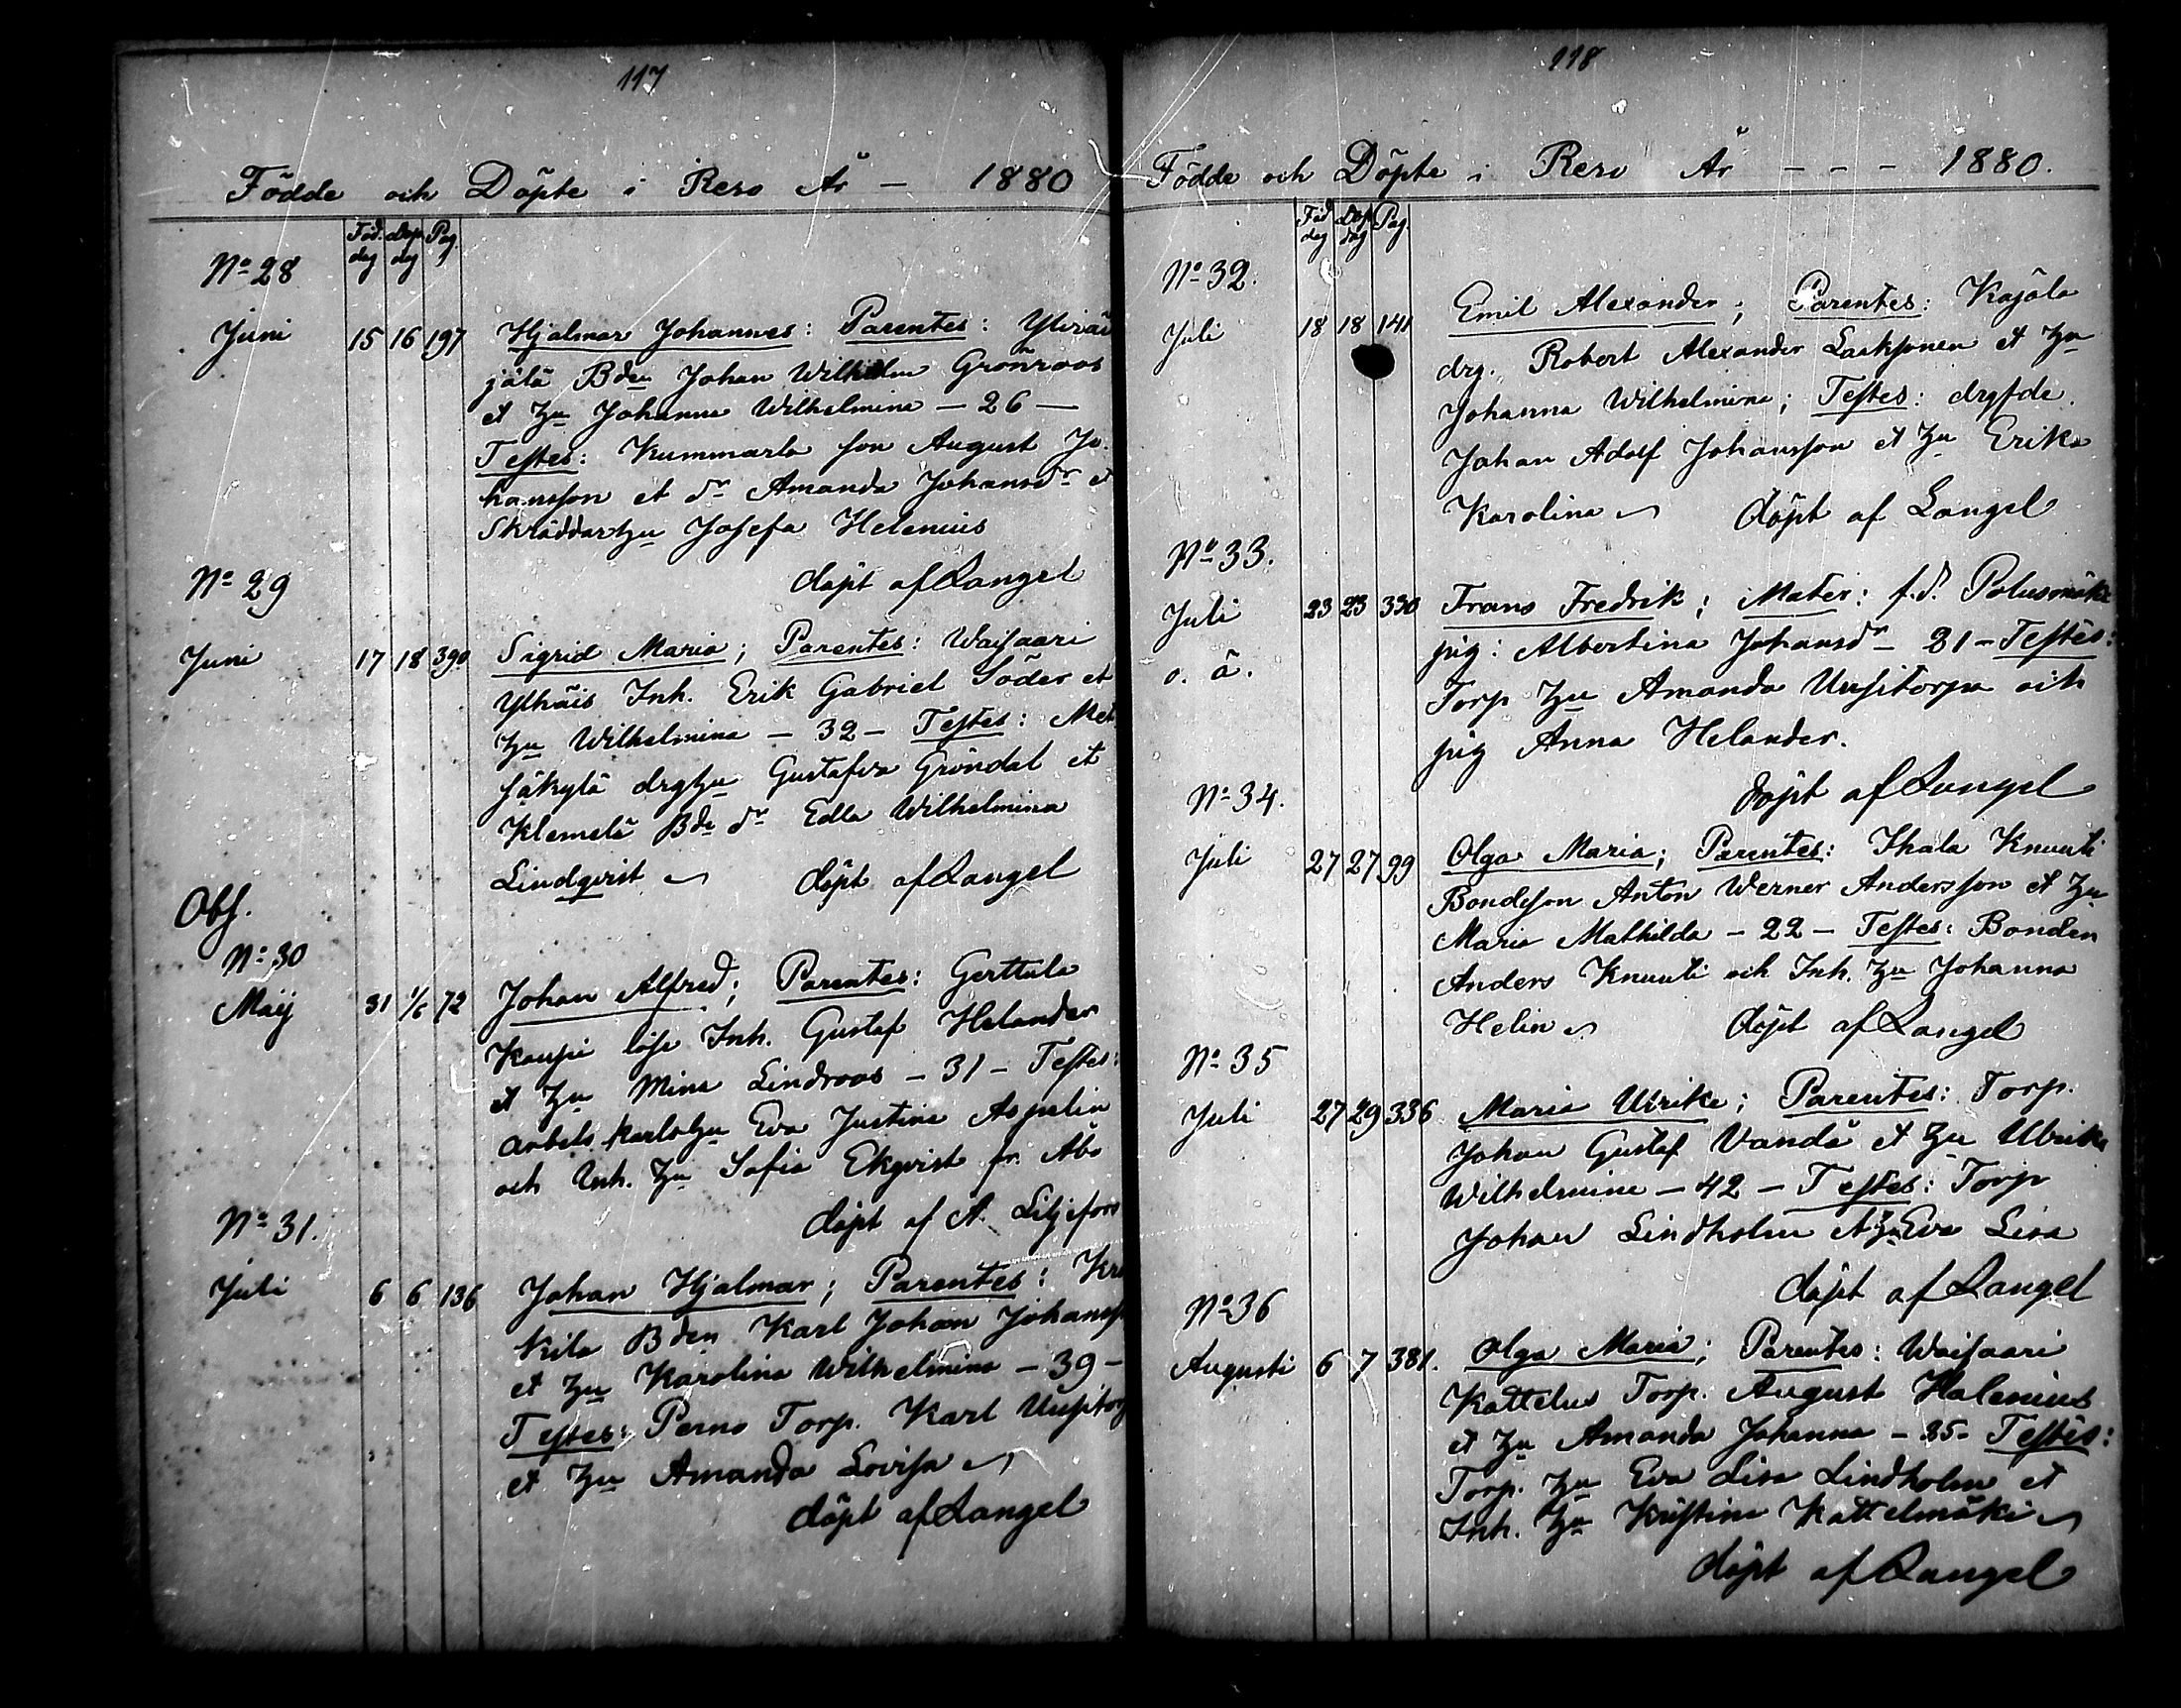 117
Födde och Döpte i Reso År – 1880
Föd. dag Döp dag Pag
No 28
Juni 15 16 197 Hjalmar Johannes: Parentes:
jälä Bden Johan Wilhelm Grönroos
et hu Johanna Wilhelmina – 26 –
Testes: Kummarla son August Jo-
hansson et dr Amanda Johansdr et
Skräddarhu Josefa Helenius
döpt af Langel
No 29
Juni 17 18 390 Sigrid Maria; Parentes: Waisaari
Ylhäis Inh. Erik Gabriel Söder et
hu Wilhelmina – 32 – Testes:
säkylä drghu Gustafva Gröndal et
Klemelä Bde dr Edla Wilhelmina
Lindqvist döpt af Langel
Obs.
No 30
Maij 31 1/6 72 Johan Alfred; Parentes: Gerttula
löse Inh. Gustaf Helander
et hu Mina Lindroos – 31 – Testes:
arbets karlshu Eva Justina Aspelin
och Inh. hu Sofia Ekqvist fr. Åbo
döpt af A. Liljefors
No 31.
Juli 6 6 136 Johan Hjalmar; Parentes:
kila Bden Karl Johan Johanss
et hu Karolina Wilhelmina – 39 –
Testes: Perno Torp. Karl Uusitorp
et hu Amanda Lovisa
döpt af Langel
118
Födde och Döpte i Reso År – – – 1880.
Föd dag Döp dag Pag
No 32.
Juli 18 18 141 Emil Alexander; Parentes: Kajala
drg. Robert Alexander Laaksonen et hu
Johanna Wilhelmina; Testes: drgfde.
Johan Adolf Johansson et hu Erika
Karolina döpt af Langel
No 33.
Juli 23 23 330 Frans Fredrik; Mater: f.d. Polusmäki
o. ä. pig: Albertina Johansdr – 21 – Testes:
Torp hu Amanda Uusitorpa och
pig Anna Helander.
döpt af Langel
No 34.
Juli 27 27 99 Olga Maria; Parentes: Ihala Knuuti
Bondeson Anton Werner Andersson et hu
Maria Mathilda – 22 – Testes: Bonden
Anders Knuuti och Inh. hu Johanna
Helin döpt af Langel
No 35
Juli 27 29 336 Maria Ulrika; Parentes: Torp.
Johan Gustaf Vandå et hu Ulrika
Wilhelmina – 42 – Testes: Torp
Johan Lindholm et hu Eva Lisa
döpt af Langel
No 36
Augusti 6 7 381. Olga Maria; Parentes: Waisaari
Kattelus Torp. August Halenius
et hu Amanda Johanna – 25 – Testes:
Torp. hu Eva Lisa Lindholm et
Inh. hu Kristina Kattelmäki
döpt af Langel